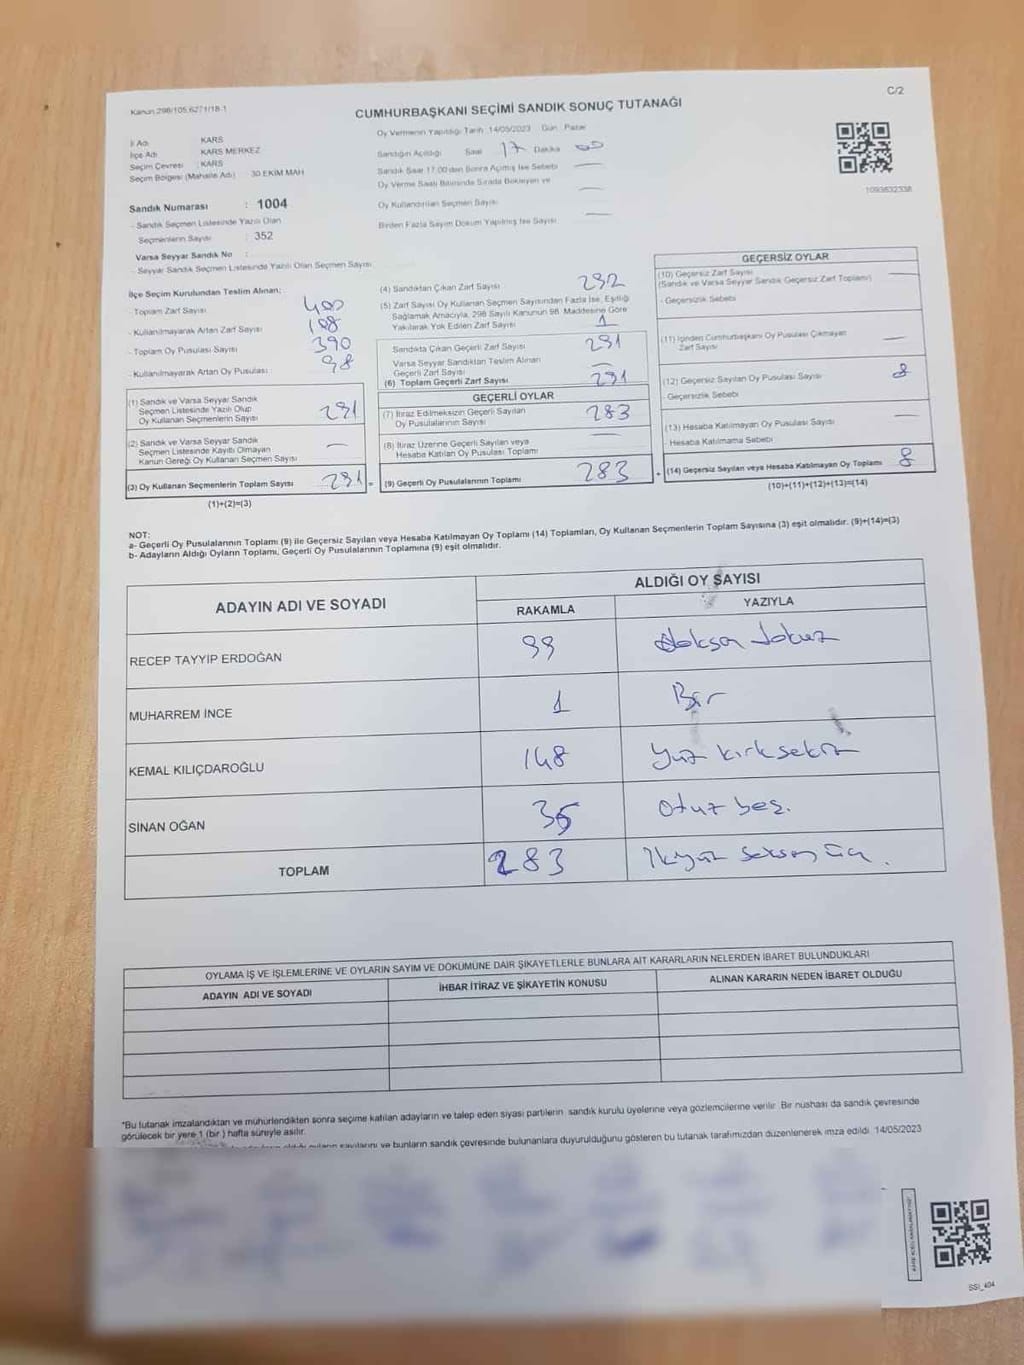 Kanun 298/105,6271/18-1
C/2
CUMHURBAŞKANI SEÇİMİ SANDIK SONUÇ TUTANAĞI
İl Adı KARS
İlçe Adı KARS MERKEZ
Seçim Çevresi : KARS
Seçim Bölgesi (Mahalle Adı) 30 EKİM MAH
Sandık Numarası : 1004
- Sandık Seçmen Listesinde Yazılı Olan
Seçmenlerin Sayısı : 352
Varsa Seyyar Sandık No :
- Seyyar Sandık Seçmen Listesinde Yazılı Olan Seçmen Sayısı
Oy Vermenin Yapıldığı Tarih 14/05/2023 Gün Pazar
Sandığın Açıldığı Saat 17 Dakika 00
Sandık Saat 17.00'den Sonra Açımış İse Sebebi —
Oy Verme Saati Bitiminde Sırada Bekleyen ve
Oy Kullandırılan Seçmen Sayısı —
Birden Fazla Sayım Döküm Yapılmış İse Sayısı —
1093632338
İlçe Seçim Kurulundan Teslim Alınan;
- Toplam Zarf Sayısı 400
- Kullanılmayarak Artan Zarf Sayısı 108
- Toplam Oy Pusulası Sayısı 390
- Kullanılmayarak Artan Oy Pusulası 98
(1) Sandık ve Varsa Seyyar Sandık
Seçmen Listesinde Yazılı Olup
Oy Kullanan Seçmenlerin Sayısı 291
(2) Sandık ve Varsa Seyyar Sandık
Seçmen Listesinde Kayıtlı Olmayan
Kanun Gereği Oy Kullanan Seçmen Sayısı —
(3) Oy Kullanan Seçmenlerin Toplam Sayısı 291 =
(1)+(2)=(3)
(4) Sandıktan Çıkan Zarf Sayısı 292
(5) Zarf Sayısı Oy Kullanan Seçmen Sayısından Fazla İse, Eşitliği
Sağlamak Amacıyla, 298 Sayılı Kanunun 98. Maddesine Göre
Yakılarak Yok Edilen Zarf Sayısı 1
Sandıkta Çıkan Geçerli Zarf Sayısı 291
Varsa Seyyar Sandıktan Teslim Alınan
Geçerli Zarf Sayısı —
(6) Toplam Geçerli Zarf Sayısı 291
GEÇERLİ OYLAR
(7) İtiraz Edilmeksizin Geçerli Sayılan
Oy Pusulalarının Sayısı 283
(8) İtiraz Üzerine Geçerli Sayılan veya
Hesaba Katılan Oy Pusulası Toplamı —
(9) Geçerli Oy Pusulalarının Toplamı 283 +
GEÇERSİZ OYLAR
(10) Geçersiz Zarf Sayısı —
(Sandık ve Varsa Seyyar Sandık Geçersiz Zarf Toplamı)
- Geçersizlik Sebebi
(11) İçinden Cumhurbaşkanı Oy Pusulası Çıkmayan
Zarf Sayısı —
(12) Geçersiz Sayılan Oy Pusulası Sayısı 8
- Geçersizlik Sebebi
(13) Hesaba Katılmayan Oy Pusulası Sayısı —
- Hesaba Katılmama Sebebi
(14) Geçersiz Sayılan veya Hesaba Katılmayan Oy Toplamı 8
(10)+(11)+(12)+(13)=(14)
NOT:
a- Geçerli Oy Pusulalarının Toplamı (9) ile Geçersiz Sayılan veya Hesaba Katılmayan Oy Toplamı (14) Toplamları, Oy Kullanan Seçmenlerin Toplam Sayısına (3) eşit olmalıdır. (9)+(14)=(3)
b- Adayların Aldığı Oyların Toplamı, Geçerli Oy Pusulalarının Toplamına (9) eşit olmalıdır.
ADAYIN ADI VE SOYADI
ALDIĞI OY SAYISI
RAKAMLA YAZIYLA
RECEP TAYYİP ERDOĞAN 99 doksan dokuz
MUHARREM İNCE 1 Bir
KEMAL KILIÇDAROĞLU 148 Yüz kırk sekiz
SİNAN OĞAN 35 otuz beş.
TOPLAM 283 İkiyüz seksen üç.
OYLAMA İŞ VE İŞLEMLERİNE VE OYLARIN SAYIM VE DÖKÜMÜNE DAİR ŞİKAYETLERLE BUNLARA AİT KARARLARIN NELERDEN İBARET BULUNDUKLARI
ADAYIN ADI VE SOYADI İHBAR İTİRAZ VE ŞİKAYETİN KONUSU ALINAN KARARIN NEDEN İBARET OLDUĞU
*Bu tutanak imzalandıktan ve mühürlendikten sonra seçime katılan adayların ve talep eden siyasi partilerin sandık kurulu üyelerine veya gözlemcilerine verilir. Bir nüshası da sandık çevresinde
görülecek bir yere 1 (bir) hafta süreyle asılır.
oyların sayılarını ve bunların sandık çevresinde bulunanlara duyurulduğunu gösteren bu tutanak tarafımızdan düzenlenerek imza edildi. 14/05/2023
SSI_404